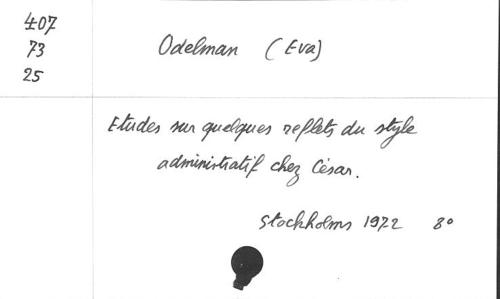 407
73
25
Odelman (Eva)
Etudes sur quelques reflets du style
administratif chez César.
Stockholms 1972 8°